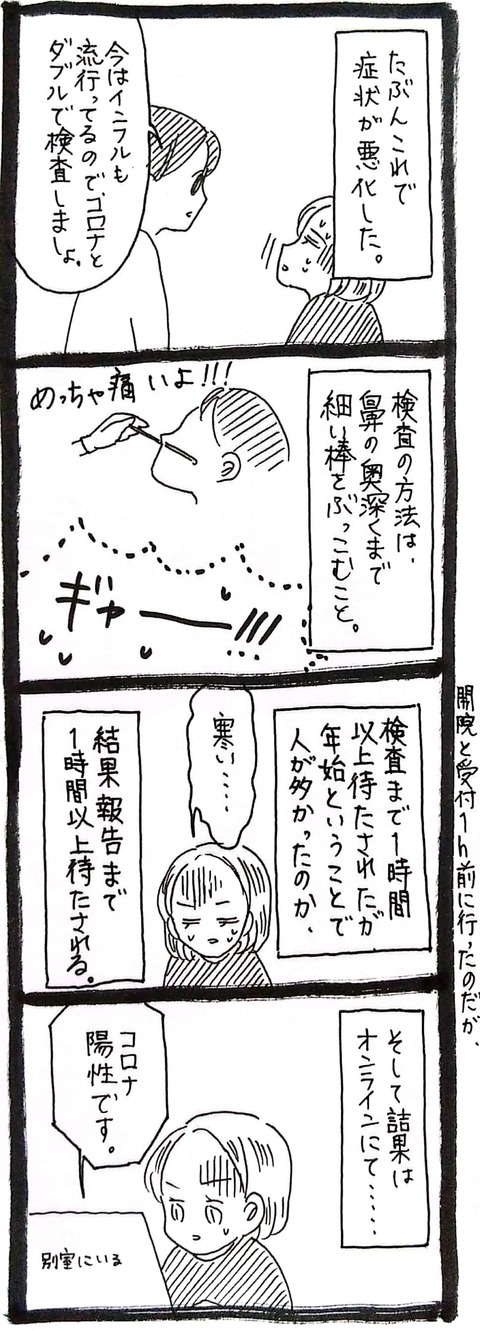 たぶんこれで
症状が悪化した。
今はインフルも
流行ってるので、コロナと
ダブルで検査しましょ。
検査の方法は、
鼻の奥深くまで
細い棒をぶっこむこと。
めっちゃ痛いよ!!!
ギャー!!!
検査まで1時間
以上待たされたが、
年始ということで
人が多かったのか、
寒い....
結果報告まで
1時間以上待たされる。
開院と受付1h前に行ったのだが、
そして詰果は
オンラインにて......
コロナ
陽性です。
別室にいる